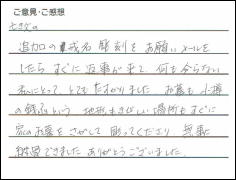 ご意見・ご感想
追加の戒名彫刻をお願いメールを
したらすぐに返事が来て、何も分らない
私にとって、とてもたすかりました お墓も小樽
の  という 地形もきびしい場所もすぐに
家のお墓をさがして彫ってくださり 無事に
納骨できました ありがとうございました。